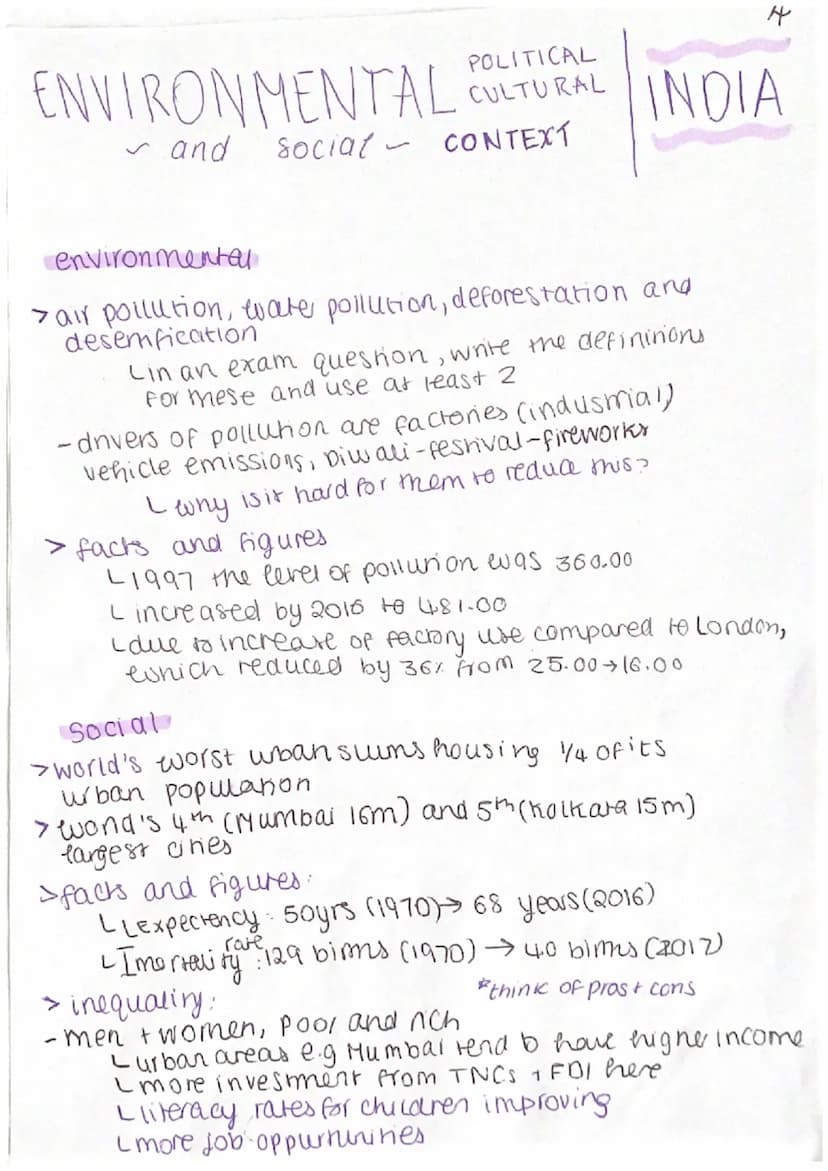 4
ENVIRONMENTAL POLITICAL CULTURAL | INDIA
~ and social ~ CONTEXT
environmental
> air poillution, water poilution, deforestation and
desertification
└in an exam question, write the definitions
for these and use at least 2
-drivers of pollution are factories (industrial)
vehicle emissions, Diwali-festival-fireworks
└ why is it hard for them to reduce this?
> facts and figures
└1997 the level of pollution was 360.00
└ increased by 2016 to 481.00
└due to increase of factory use compared to London,
which reduced by 36% from 25.00→16.00
social
>world's worst urban slums housing 1/4 of its
urban population
> world's 4th (Mumbai 16m) and 5th (Kolkata 15m)
largest cities
>facts and figures:
└LExpectency: 50yrs (1970)→ 68 years (2016)
└Imortality rate: 129 births (1970) → 40 births (2017)
> inequality:
*think of pros + cons
-men + women, poor and rich
└urban areas e.g Mumbai tend to have higher income
└more investment from TNCs + FDI here
└literacy rates for children improving
└more job oppurtunities